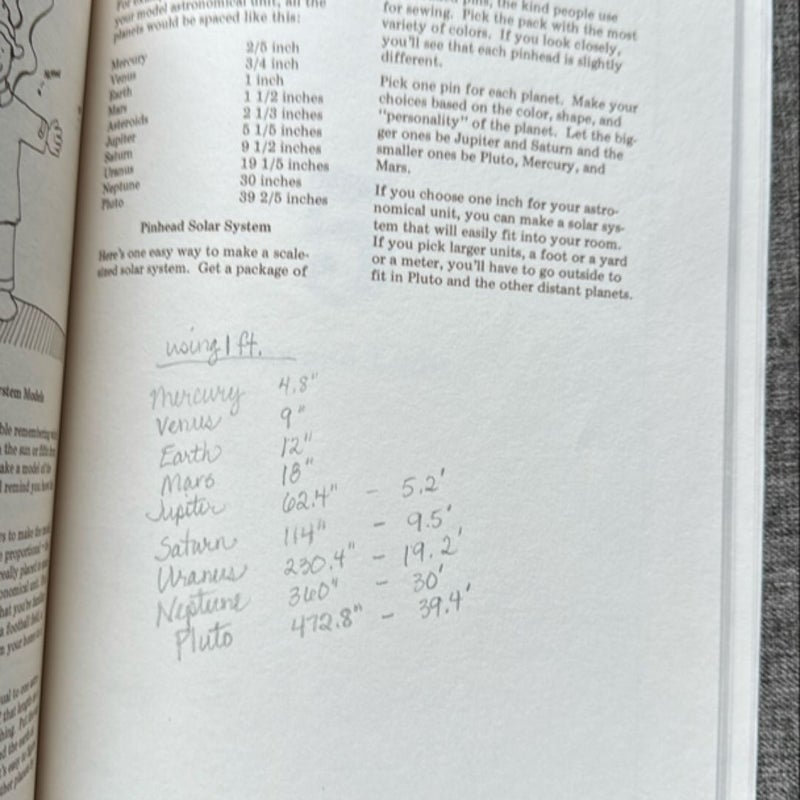 your model astronomical unit, all the
planets would be spaced like this:
Mercury 2/5 inch
Venus 3/4 inch
Earth 1 inch
Mars 1 1/2 inches
Asteroids 2 1/3 inches
Jupiter 5 1/5 inches
Saturn 9 1/2 inches
Uranus 19 1/5 inches
Neptune 30 inches
Pluto 39 2/5 inches
Pinhead Solar System
Here's one easy way to make a scale-
sized solar system. Get a package of
pins, the kind people use
for sewing. Pick the pack with the most
variety of colors. If you look closely,
you'll see that each pinhead is slightly
different.
Pick one pin for each planet. Make your
choices based on the color, shape, and
"personality" of the planet. Let the big-
ger ones be Jupiter and Saturn and the
smaller ones be Pluto, Mercury, and
Mars.
If you choose one inch for your astro-
nomical unit, you can make a solar sys-
tem that will easily fit into your room.
If you pick larger units, a foot or a yard
or a meter, you'll have to go outside to
fit in Pluto and the other distant planets.
using 1 ft.
Mercury 4.8"
Venus 9"
Earth 12"
Mars 18"
Jupiter 62.4" - 5.2'
Saturn 114" - 9.5'
Uranus 230.4" - 19.2'
Neptune 360" - 30'
Pluto 472.8" - 39.4'